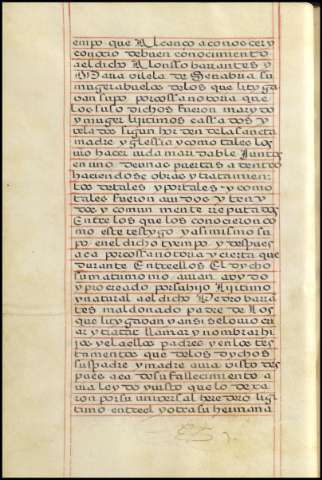 empo que Alcanço a conoscer y
conoçio de buen conocimiento
a el dicho Alonsso barrantes y
Maria vilela de Senabria su
muger abuelos de los que lityga
van supo por cossa notoria que
los suso dichos fueron marydo
y muger lijitimos cassados y
velados sigun horden de la sancta
madre yglessia y como tales los
vio hacer vida maridable Juntos
en uno de unas puertas a dentro
haciendose obras y tratamien
tos de tales y por tales y como
tales fueron avidos y teny
dos y comun mente Reputados
Entre los que los conocieron co
mo este testygo y asimismo su
po en el dicho tyempo y despues
aca por cossa notoria y cierta que
durante Entre ellos El dycho
su matrimonio avian avydo
y procreado por su hijo Lijitimo
y natural a el dicho Pedro barra
tes maldonado padre de los
que litygavan y ansi se lo vio cri
ar y tratar llamar y nombrar hi
jo y el a ellos padres y en los tes
tamentos que de los dychos
sus padre y madre avia visto des
pues aca de su fallecimiento a
via leydo y visto que lo dexa
ron por su universal heredero ligi
timo entre el y otra su hermana